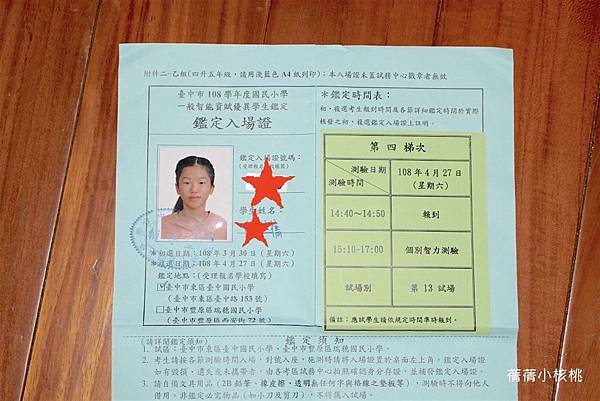 附件二-乙組(四升五年級,請用淺藍色 A4 紙列印):本入場證未蓋試務中心戳章者無效
臺中市 108 學年度國民小學
一般智能資賦優異學生鑑定
鑑定入場證
鑑定入場證號碼:
學生姓名:
*初選日期:108 年 3 月 30 日(星期六)
*複選日期:108 年 4 月 27 日(星期六)
鑑定地點:(受理報名學校填寫)
臺中市東區臺中國民小學
(臺中市東區臺中路 153 號)
□臺中市豐原區瑞穗國民小學
(臺中市豐原區西安街 72 號)
*鑑定時間表:
初、複選考生報到時間及各節詳細鑑定時間於實際
核發之初、複選鑑定入場證上註明。
第四梯次
測驗日期
測驗時間
108 年 4 月 27 日
(星期六)
14:40～14:50
報到
15:10-17:00
個別智力測驗
試場別
第 13 試場
備註:應試學生請依規定時間準時報到。
(請詳閱鑑定須知)
鑑定須知
1. 試區:臺中市東區臺中國民小學、臺中市豐原區瑞穗國民小學。
2. 考生請按各節測驗時間入場,對號入座,施測時請將入場證置於桌面左上角,鑑定入場證
如有毀損、遺失或未攜帶者,由各考區試務中心拍照確認身分存證,並補發鑑定入場證。
3. 請自備文具用品(2B 鉛筆、橡皮擦、透明無任何字與格線之墊板等),測驗時不得向他人
借用,非鑑定必需物品(如小刀及剪刀),不得攜入試場。
蒨蒨小核桃